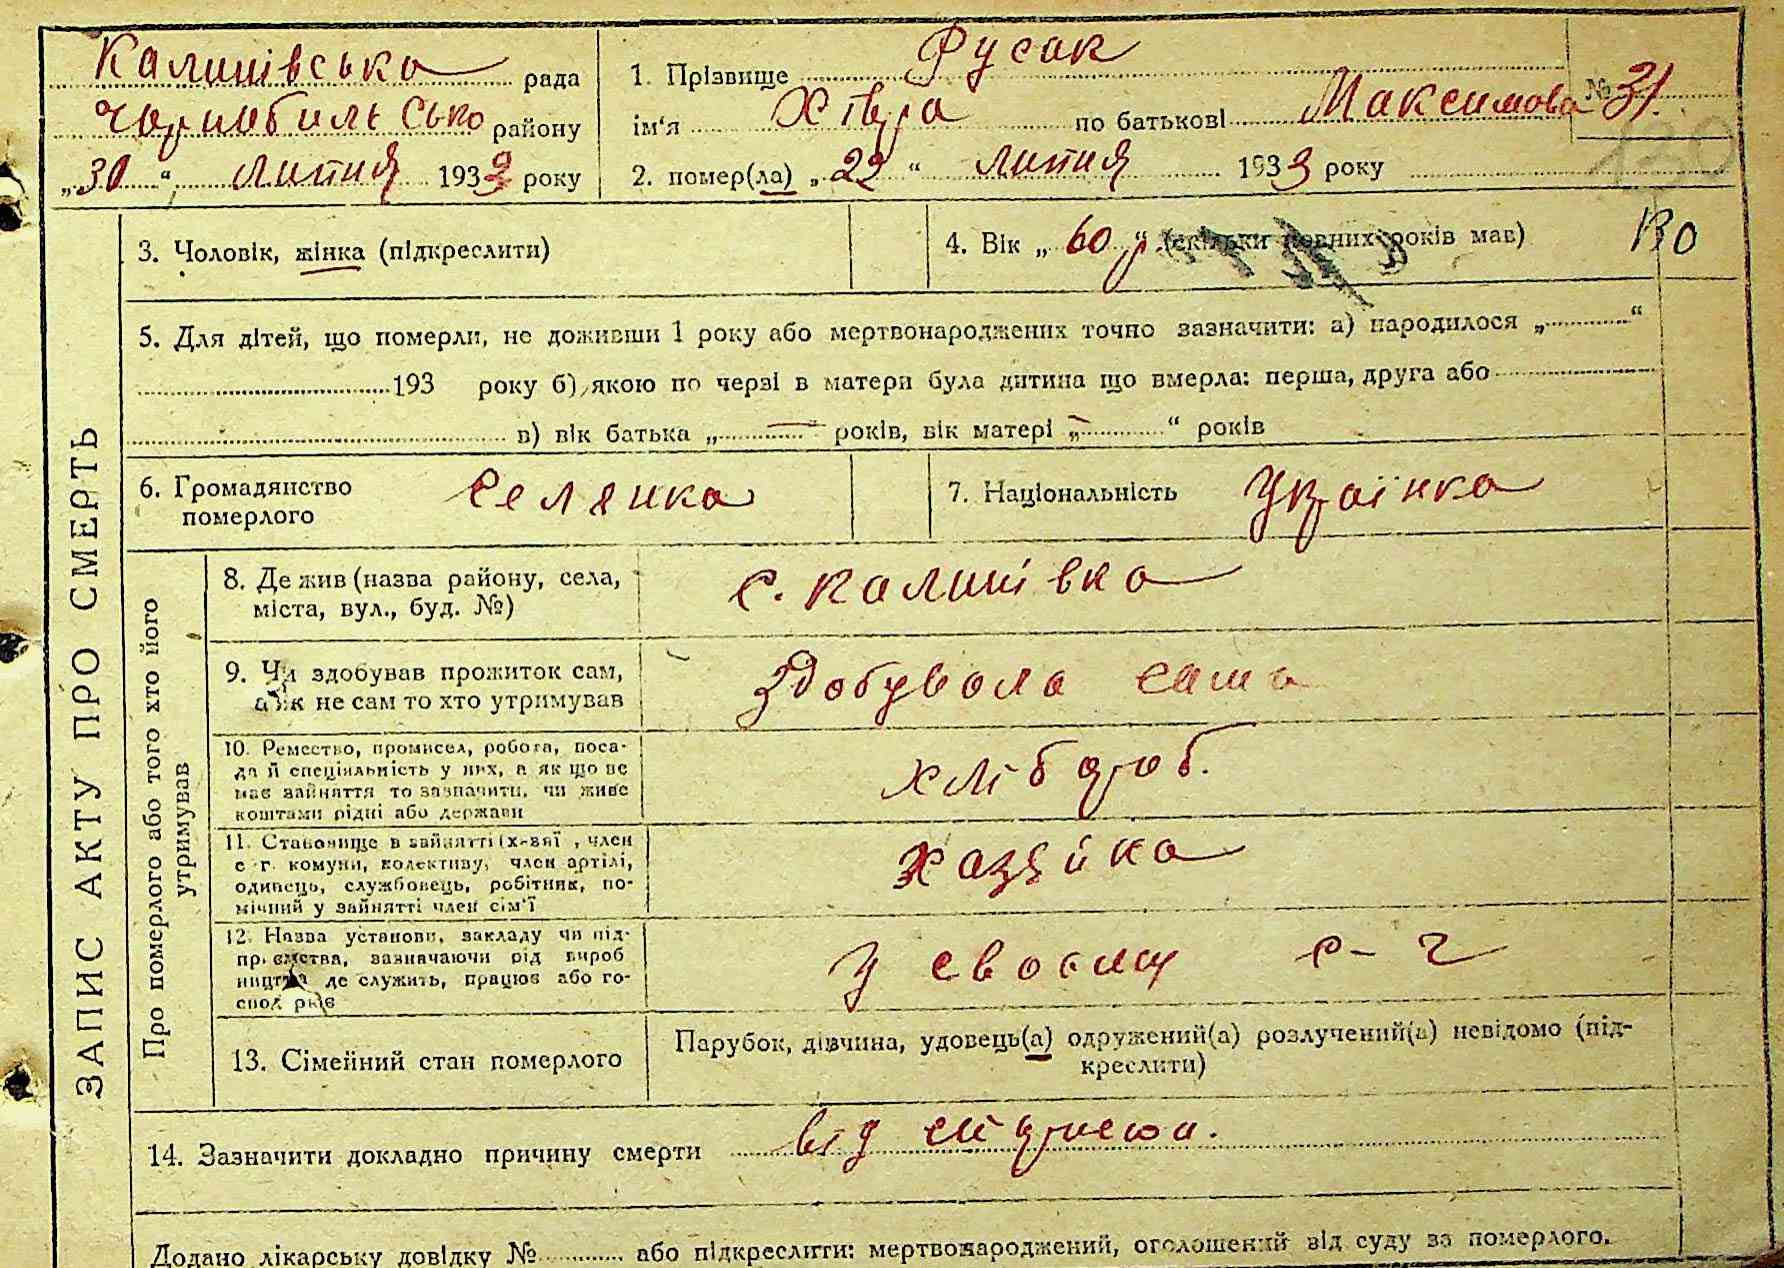 Калинівська рада
Чорнобильсько району
„30“ липня 1933 року
1. Прізвище Русак
№ 31.
ім'я Хівра по батькові Максимова
2. помер(ла) „22“ липня 1933 року
3. Чоловік, жінка (підкреслити)
4. Вік „60 р“ (скільки повних років мав)
130
5. Для дітей, що померли, не доживши 1 року або мертвонароджених точно зазначити: а) народилося „ “
193 року б) якою по черзі в матери була дитина що вмерла: перша, друга або
в) вік батька „ — “ років, вік матері „ — “ років
6. Громадянство
померлого
Селянка
7. Національність Українка
ЗАПИС АКТУ ПРО СМЕРТЬ
Про померлого або того хто його
утримував
8. Де жив (назва району, села,
міста, вул., буд. №)
с. Калинівка
9. Чи здобував прожиток сам,
а як не сам то хто утримував
Здобувала сама
10. Ремество, промисел, робота, поса-
да й спеціяльність у них, а як що не
має зайняття то зазначити, чи живе
коштами рідні або держави
хлібороб.
11. Становище в зайнятті (х-вяї, член
с-г. комуни, колективу, член артілі,
одинець, службовець, робітник, по-
мічний у зайнятті член сім'ї
Хазяйка
12. Назва установи, закладу чи під-
приємства, зазначаючи рід вироб
ництва де служить, працює або го-
сподарює
У своєму с-г
13. Сімейний стан померлого
Парубок, дівчина, удовець(а) одружений(а) розлучений(а) невідомо (під-
креслити)
14. Зазначити докладно причину смерти від
Додано лікарську довідку № або підкреслити: мертвонароджений, оголошений від суду за померлого.